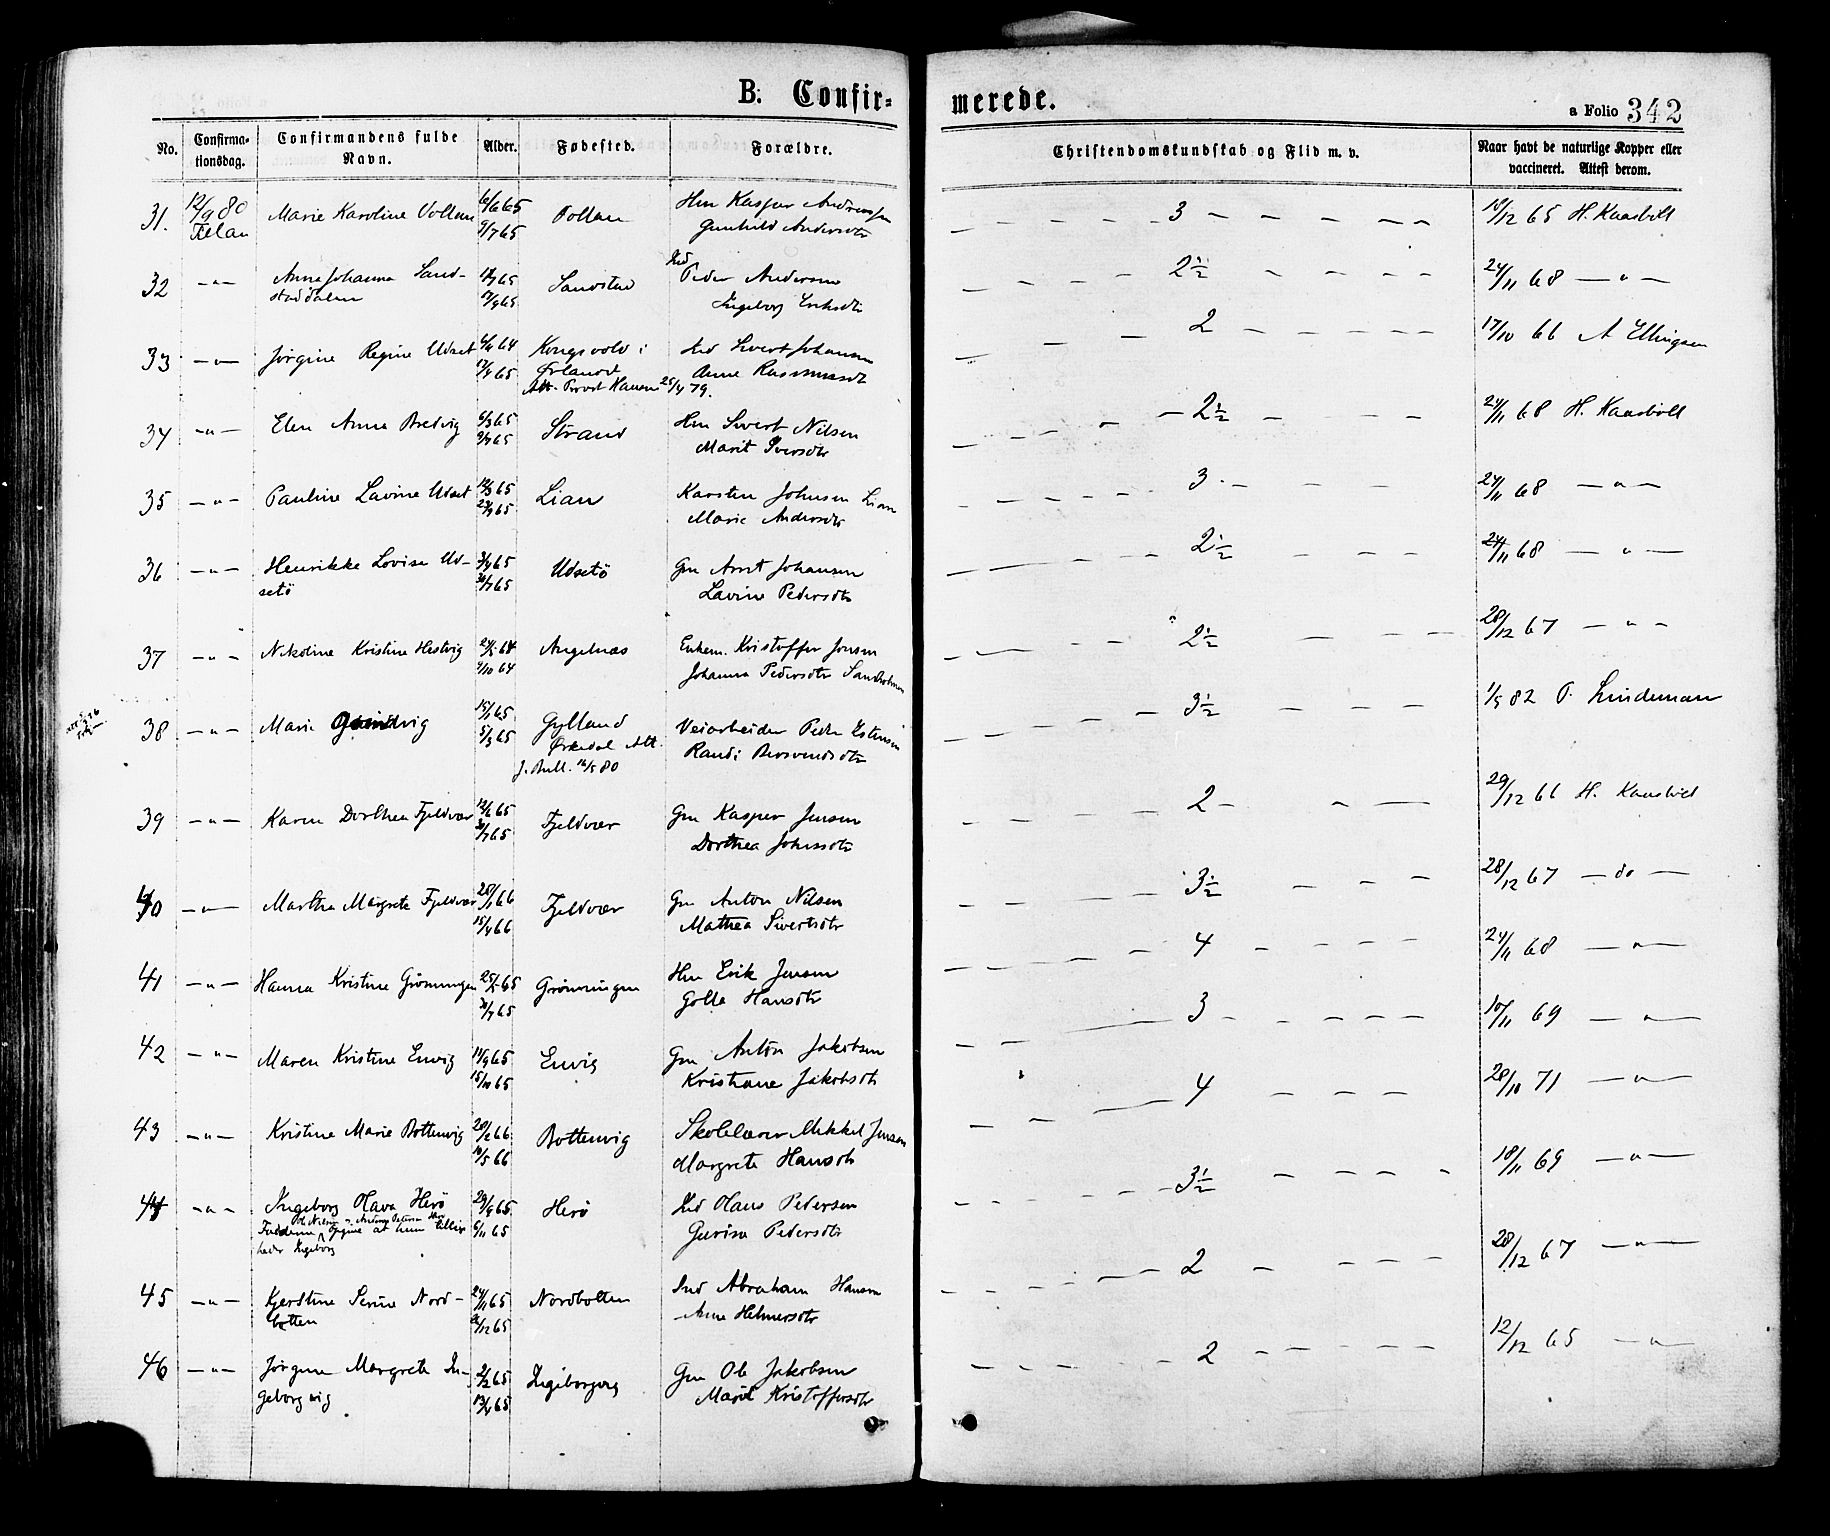 B: Confir=
merede.
a Folio 342
No.
Confirma-
tionsdag.
Confirmandens fulde
Navn.
Alder.
Fødested.
Forældre.
Christendomskundskab og Flid m. v.
Naar havt de naturlige Kopper eller
vaccineret. Attest derom.
31. 12/9 80 Marie Karoline Vollan 6/6 65 Vollan Hm Kasper Andersen — — — — 3 — — — — — 19/12 65 H. Kaasbøll
Fillan 9/7 65 Gunhild Andersdtr
32 — " — Anna Johanna Sand- 65 Sandstad Ind Peder Andersen — — 2½ — — — — 24/11 68 — " —
staddalen 17/9 65 Ingeborg Eriksdtr
33 — " — Jørgine Regine Udset 64 Kongsvold i Ind Sivert Johansen — — — 2 — — — — — 17/10 66 A Ellingsen
17/4 65 Ørlandet Anne Rasmusdt
Att. Provst Hansen 25/4 79.
34 — " — Elen Anna Bredvig 6/3 65 Strand Hm Sivert Nilsen — — — — 2½ — — — 24/11 68 H. Kaasbøll
9/7 65 Marit Iversdtr
35 — " — Pauline Lavine Udset 12/3 65 Lian Karsten Johnsen Lian — — — — 3 — — — — 24/11 68 — " —
23/7 65 Marie Andersdtr
36 — " — Henrikke Lovise Ud- 3/4 65 Udsetö Gm Arnt Johansen — — — — 2½ — — — 24/11 68 — " —
setö 30/7 65 Lavine Pedersdtr
37 — " — Nikoline Kristine Hestvig 24/5 64 Angelnæs Enkem. Kristoffer Jonsen — — — — 2½ — — — 28/12 67 — " —
9/10 64 Johanna Pedersdtr Sandholmen
38 — " — Marie 15/1 65 Gylland Veiarbeider Peder Estensen — — — — 3½ — — — — 1/5 82 P. Lindeman
5/3 65 Ørkedal Att. Randi Bersvendsdtr
J. Bull. 16/5 80
39 — " — Karen Dorthea Fjeldvær 12/6 65 Fjeldvær Gm Kasper Jensen — — — — 2 — — — 29/12 66 H. Kaasbøll
30/7 65 Dorthea Johnsdtr
40 — " — Martha Margrete Fjeldvær 28/1 66 Fjeldvær Gm Anton Nilsen — — — — 3½ — — — 28/12 67 — do —
15/4 66 Mathea Sivertsdtr
41 — " — Hanna Kristine Grönningen 25/5 65 Grönningen Hm Erik Jensen — — — — 4 — — — — 24/11 68 — " —
30/7 65 Golla Hansdtr
42 — " — Maren Kristine Envig 14/9 65 Envig Gm Anton Jakobsen — — — 3 — — — — — 10/11 69 — " —
15/10 65 Kristiane Jakobsdtr
43 — " — Kristine Marie Bottenvig 20/2 66 Bottenvig Skolelærer Mikkel Jensen — — — 4 — — — 28/10 71 — " —
10/5 66 Margrete Hansdtr
44 — " — Ingeborg Olava Herö 29/9 65 Herö Ind Hans Pedersen — — — — 3½ — — — — 18/11 69 — " —
6/11 65 Gurina Pedersdtr
heder Ingeborg
45 — " — Kjerstine Serine Nord- 24/11 65 Nordbotten Ind Abraham Hansen — — — — 2 — — — 28/12 67 — " —
botten 26/12 65 Anne Helmersdtr
46 — " — Jørgine Margrete In- 2/2 65 Ingeborgvig Gm Ole Jakobsen — — — — 2 — — — — — 12/12 65 — " —
geborgvig 17/4 65 Marit Kristoffersdtr